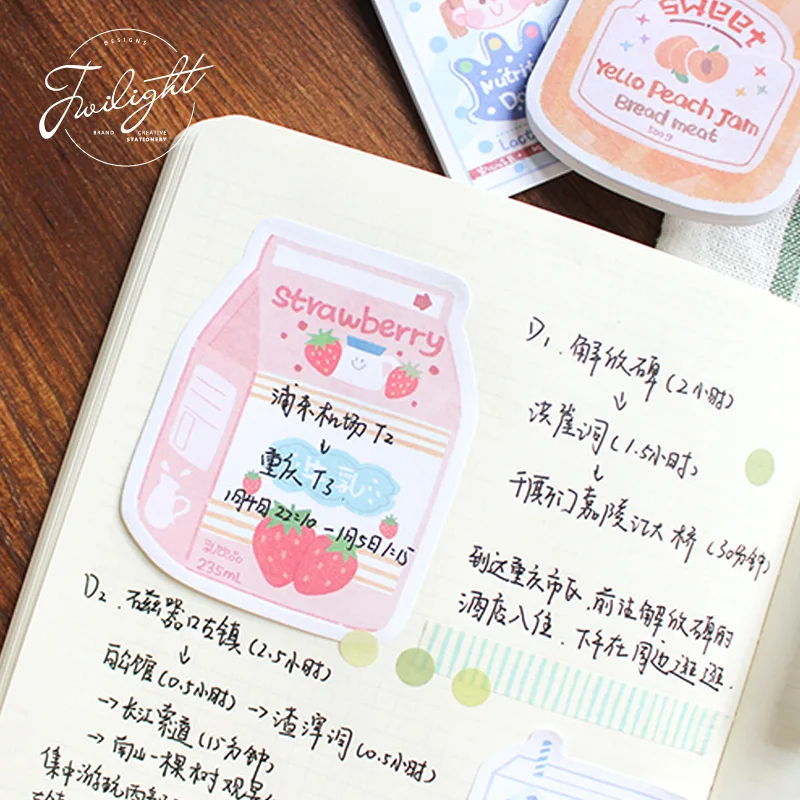 DESIGNS
Twilight
BRAND CREATIVE
STATIONERY
Nutrit
Lact
Sweet
Yello Peach Jam
Bread meat
500g
strawberry
浦东机场 T2
↓
重庆 T3
1月4日 22:10 - 1月5日 1:15
乳
乳饮品
235mL
D1. 解放碑 (2小时)
↓
洪崖洞 (1.5小时)
↓
千厮门嘉陵江大桥 (30分钟)
到达重庆市区,前往解放碑的
酒店入住,下午在周边逛逛.
D2. 磁器口古镇 (2.5小时)
↓
白公馆 (0.5小时) → 渣滓洞 (0.5小时)
→ 长江索道 (15分钟)
→ 南山一棵树观景
集中游玩两